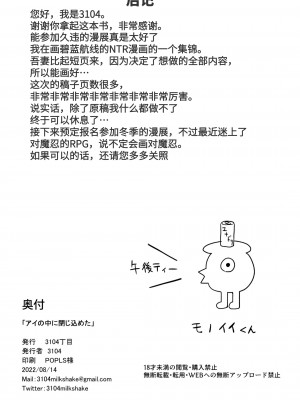 后记
您好，我是3104。
谢谢你拿起这本书，非常感谢。
能参加久违的漫展真是太好了
我在画碧蓝航线的NTR漫画的一个集锦。
吾妻比起短页来，因为决定了想做的全部内容，
所以能画好…
这次的稿子页数很多，
非常非常非常非常非常非常厉害。
说实话，除了原稿我什么都做不了
终于可以休息了…
接下来预定报名参加冬季的漫展，不过最近迷上了
对魔忍的RPG，说不定会画对魔忍。
如果可以的话，还请您多多关照
午後ティー
モノイイくん
奥付
「アイの中に閉じ込めた」
発行　3104丁目
発行者　3104
印刷　POPLS様
2022/08/14
Mail：3104milkshake@gmail.com
Twitter：3104milkshake
18才未満の閲覧・購入禁止
無断転載・転用・WEBへの無断アップロード禁止